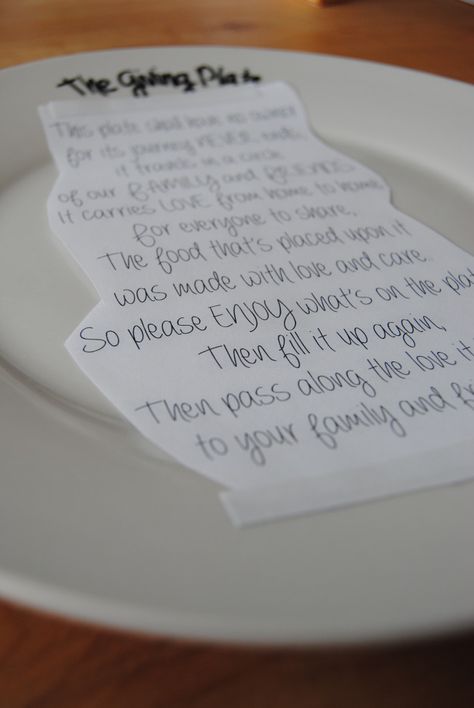 The Giving Plate
This plate shall have no owner
for its journey NEVER ends
it travels in a circle
of our FAMILY and FRIENDS
It carries LOVE from home to home,
for everyone to share,
The food that's placed upon it
was made with love and care.
So please ENJOY what's on the plat
Then fill it up again,
Then pass along the love it
to your family and fr